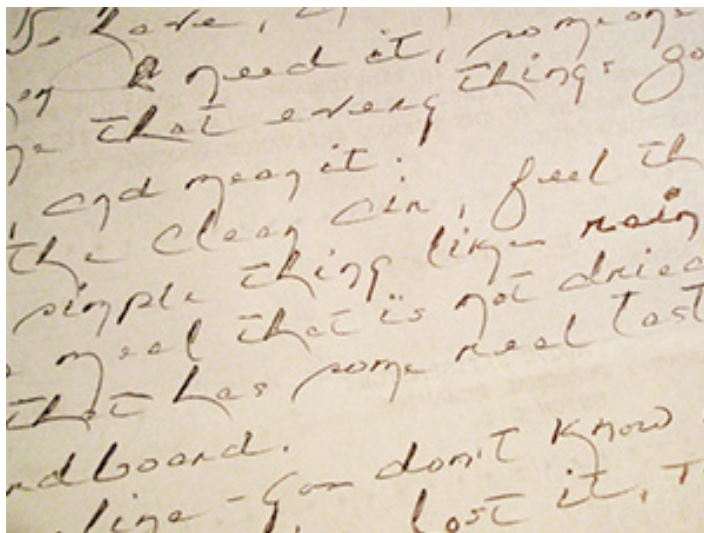 have,
need it, someone
that every things go
and mean it.
the clean air, feel th
simple thing like rain
meal that is not dried
that has some real tast
rdboard.
line - you don't know
lost it,